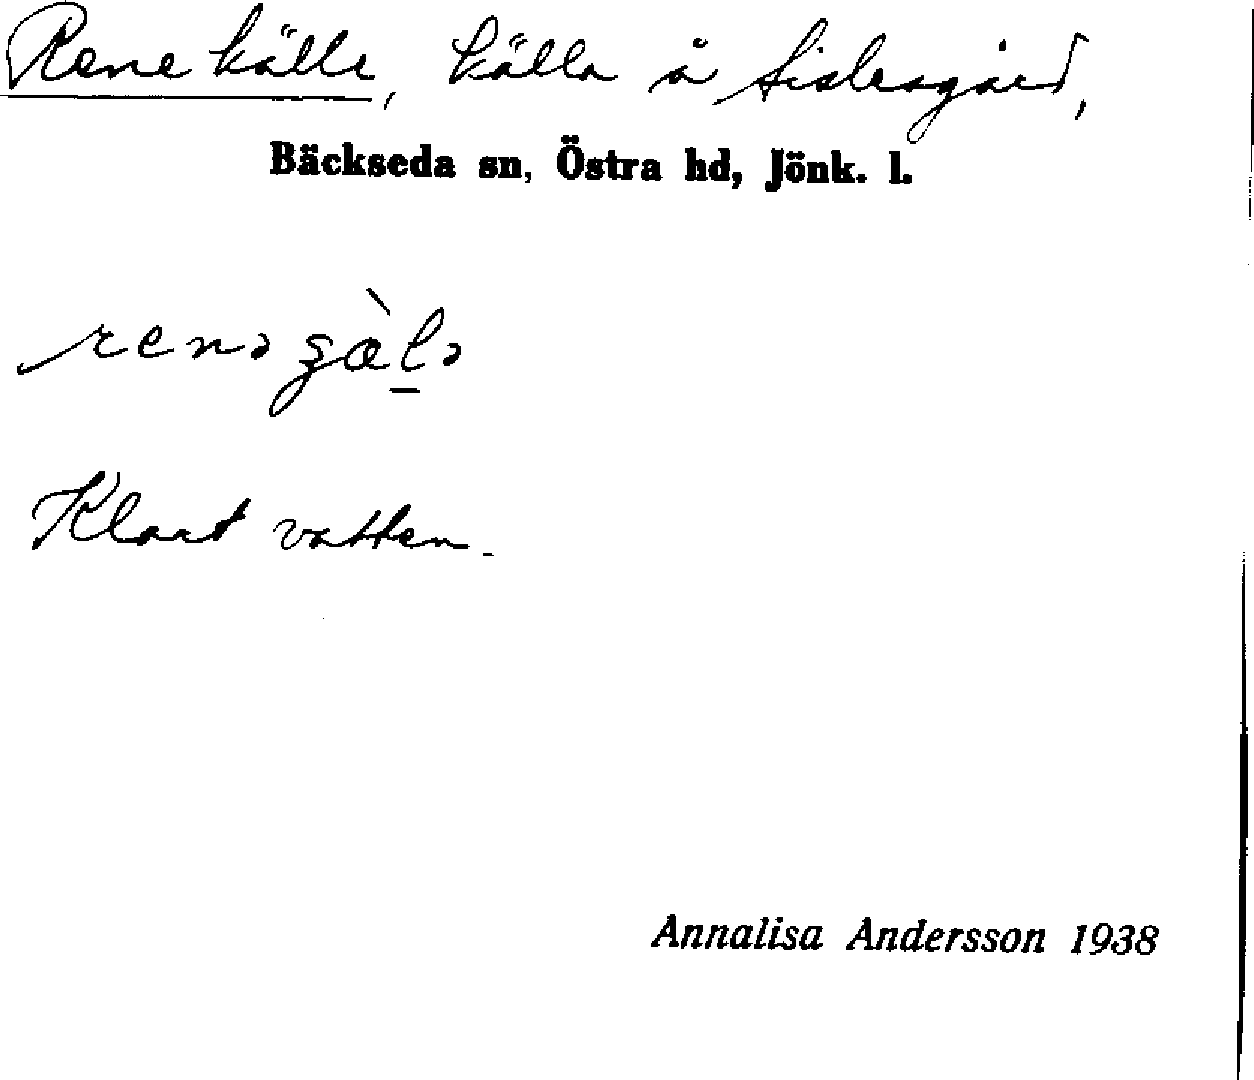 Rene källe, källa å Fiskesgård,
Bäckseda sn, Östra hd, Jönk. l.
Klart vatten.
Annalisa Andersson 1938